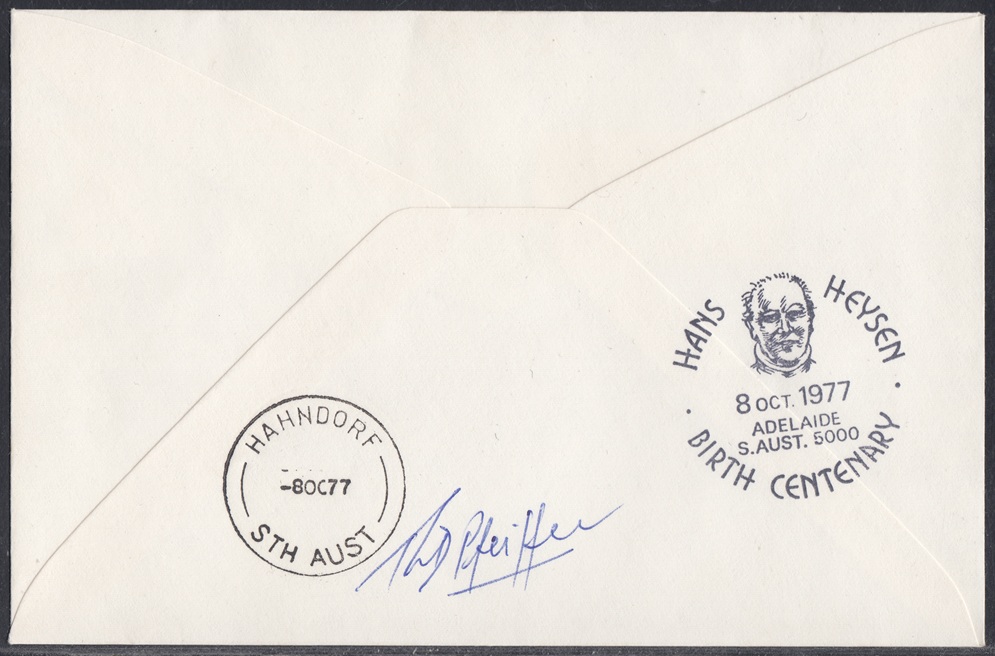 HANS HEYSEN
8 OCT. 1977
ADELAIDE
S.AUST. 5000
BIRTH CENTENARY
HAHNDORF
-8OC77
STH AUST
Pfeiffer